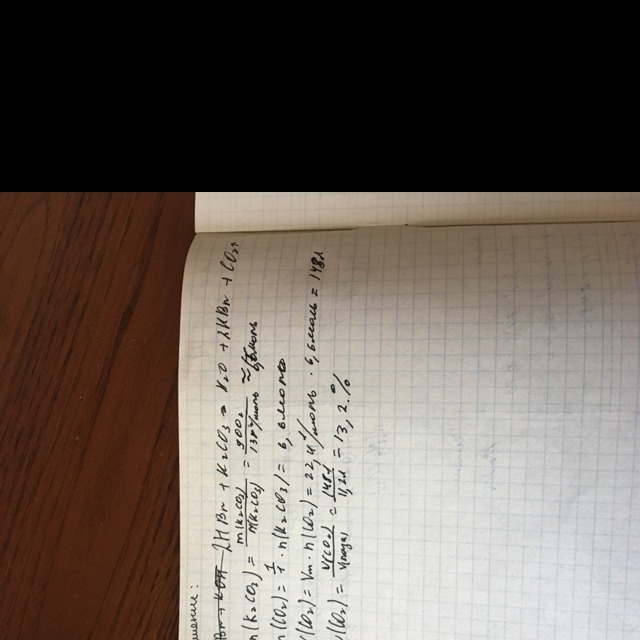 шение:
2HBr + K₂CO₃ → H₂O + 2KBr + CO₂↑
n(K₂CO₃) = m(K₂CO₃)/M(K₂CO₃) = 900г/138г/моль ≈ 6,6моль
n(CO₂) = 1/1 · n(K₂CO₃) = 6,6моль
V(CO₂) = Vm · n(CO₂) = 22,4л/моль · 6,6моль = 148л
(CO₂) = V(CO₂)/V( = 148л/11,2л = 13,2%